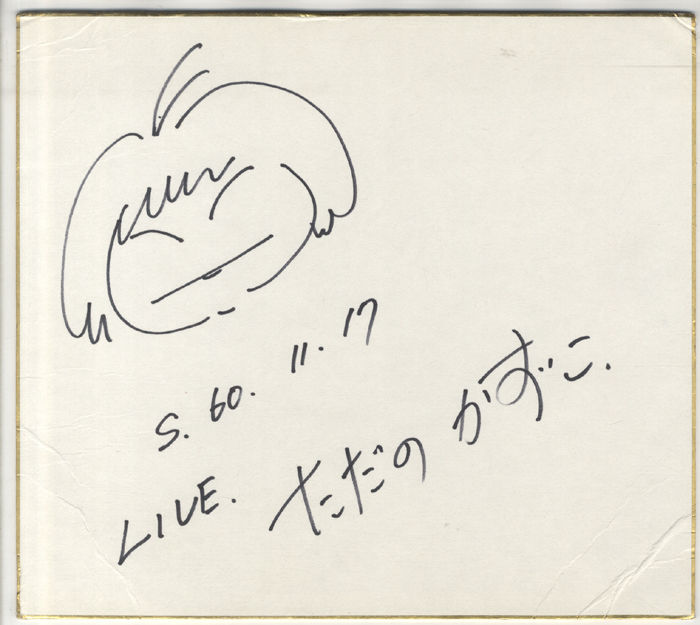 S. 60. 11. 17
LIVE.
ただの かずこ.